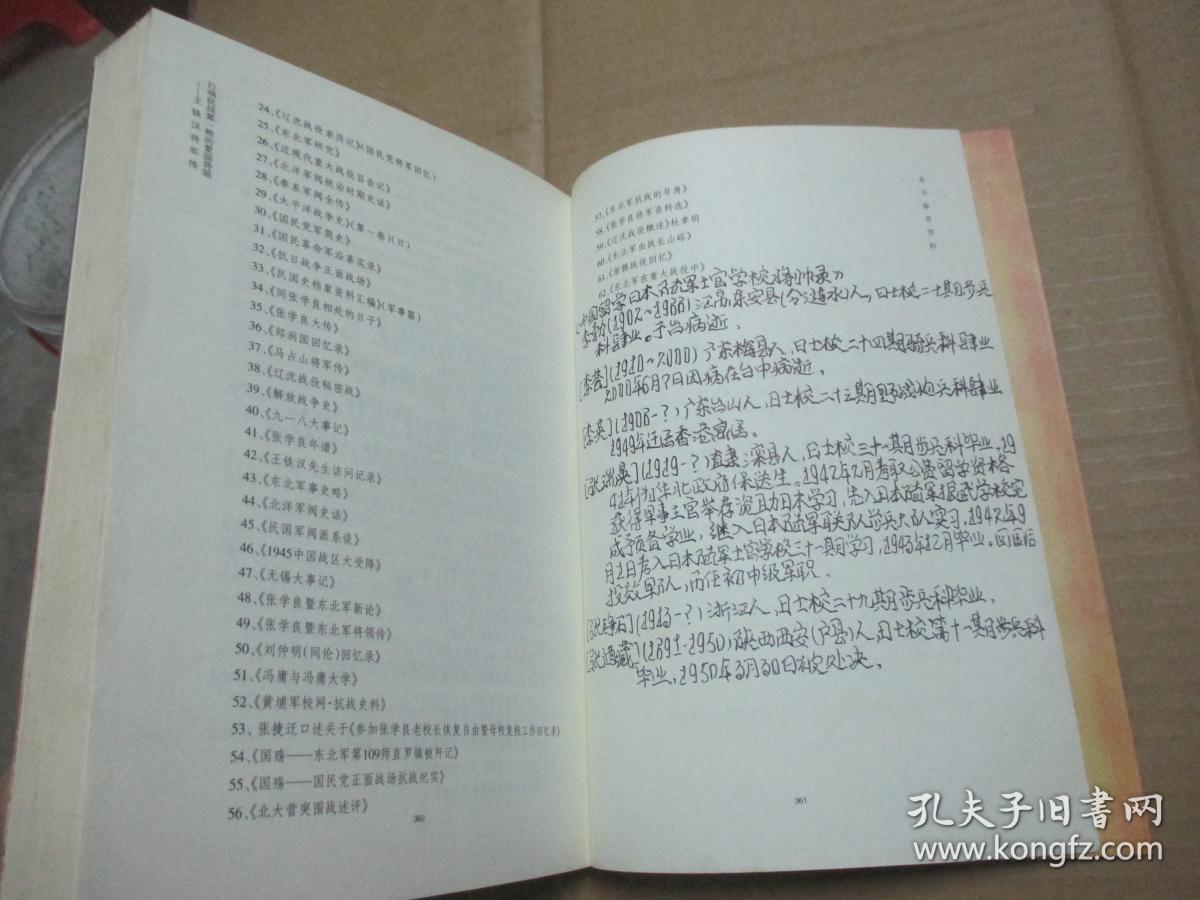 打响抗战第一枪的爱国将领
——王铁汉将军传
24、《辽沈战役亲历记》(国民党将军回忆)
25、《东北军研究》
26、《近现代重大战役目击记》
27、《北洋军阀统治时期史话》
28、《奉系军阀全传》
29、《太平洋战争史》(第一卷)(日)
30、《国民党军简史》
31、《国民革命军沿革实录》
32、《抗日战争正面战场》
33、《民国史档案资料汇编》(军事篇)
34、《同张学良相处的日子》
35、《张学良大传》
36、《郑洞国回忆录》
37、《马占山将军传》
38、《辽沈战役秘密战》
39、《解放战争史》
40、《九一八大事记》
41、《张学良年谱》
42、《王铁汉先生访问记录》
43、《东北军事史略》
44、《北洋军阀史话》
45、《民国军阀派系谈》
46、《1945中国战区大受降》
47、《无锡大事记》
48、《张学良暨东北军新论》
49、《张学良暨东北军将领传》
50、《刘仲明(同伦)回忆录》
51、《冯庸与冯庸大学》
52、《黄埔军校网·抗战史料》
53、张捷迁口述关于《参加张学良老校长恢复自由暨母校复校工作回忆录》
54、《国殇——东北军第109师直罗镇被歼记》
55、《国殇——国民党正面战场抗战纪实》
56、《北大营突围战述评》
360
本书参考资料
57、《东北军抗战的号角》
58、《张学良将军资料选》
59、《辽沈战役概述》杜聿明
60、《东北军血战长山峪》
61、《淮赣战役回忆》
62、《东北军在重大战役中》
《中国留学日本陆军士官学校将帅录》
(1907~1988)江苏东安县(今涟水)人,日士校二十期步兵
科肄业。于台病逝.
(1910~2000)广东梅县人,日士校二十四期骑兵科肄业
2000年6月7日因病在台中病逝.
[李英](1908-?)广东台山人,日士校二十三期野战炮兵科肄业
1949年迁居香港寓居。
[张瑞昊](1919-?)直隶滦县人,日士校三十一期步兵科毕业,19
41年伪华北政府保送生。1942年2月考取公费留学资格
获得军事主官举荐资助日本学习,先入日本陆军振武学校完
成予备学业,继入日本陆军联队步兵大队实习,1942年9
月1日考入日本陆军士官学校三十一期学习,1943年12月毕业。回国后
投效军人,历任初中级军职.
[张峥石](1913-?)浙江人,日士校二十九期步兵科毕业.
(1891-1950)陕西西安(户县)人,日士校第十一期步兵科
毕业,1950年3月30日被处决.
361
孔夫子旧书网
www.kongfz.com